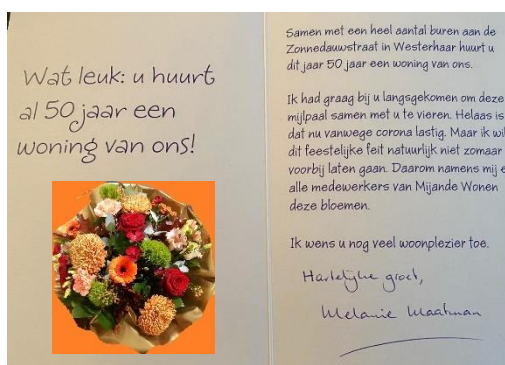 Wat leuk: u huurt
al 50 jaar een
woning van ons!
Samen met een heel aantal buren aan de
Zonnedauwstraat in Westerhaar huurt u
dit jaar 50 jaar een woning van ons.
Ik had graag bij u langsgekomen om deze
mijlpaal samen met u te vieren. Helaas is
dat nu vanwege corona lastig. Maar ik wil
dit feestelijke feit natuurlijk niet zomaar
voorbij laten gaan. Daarom namens mij e
alle medewerkers van Mijande Wonen
deze bloemen.
Ik wens u nog veel woonplezier toe.
Hartelijke groet,
Melanie Maatman